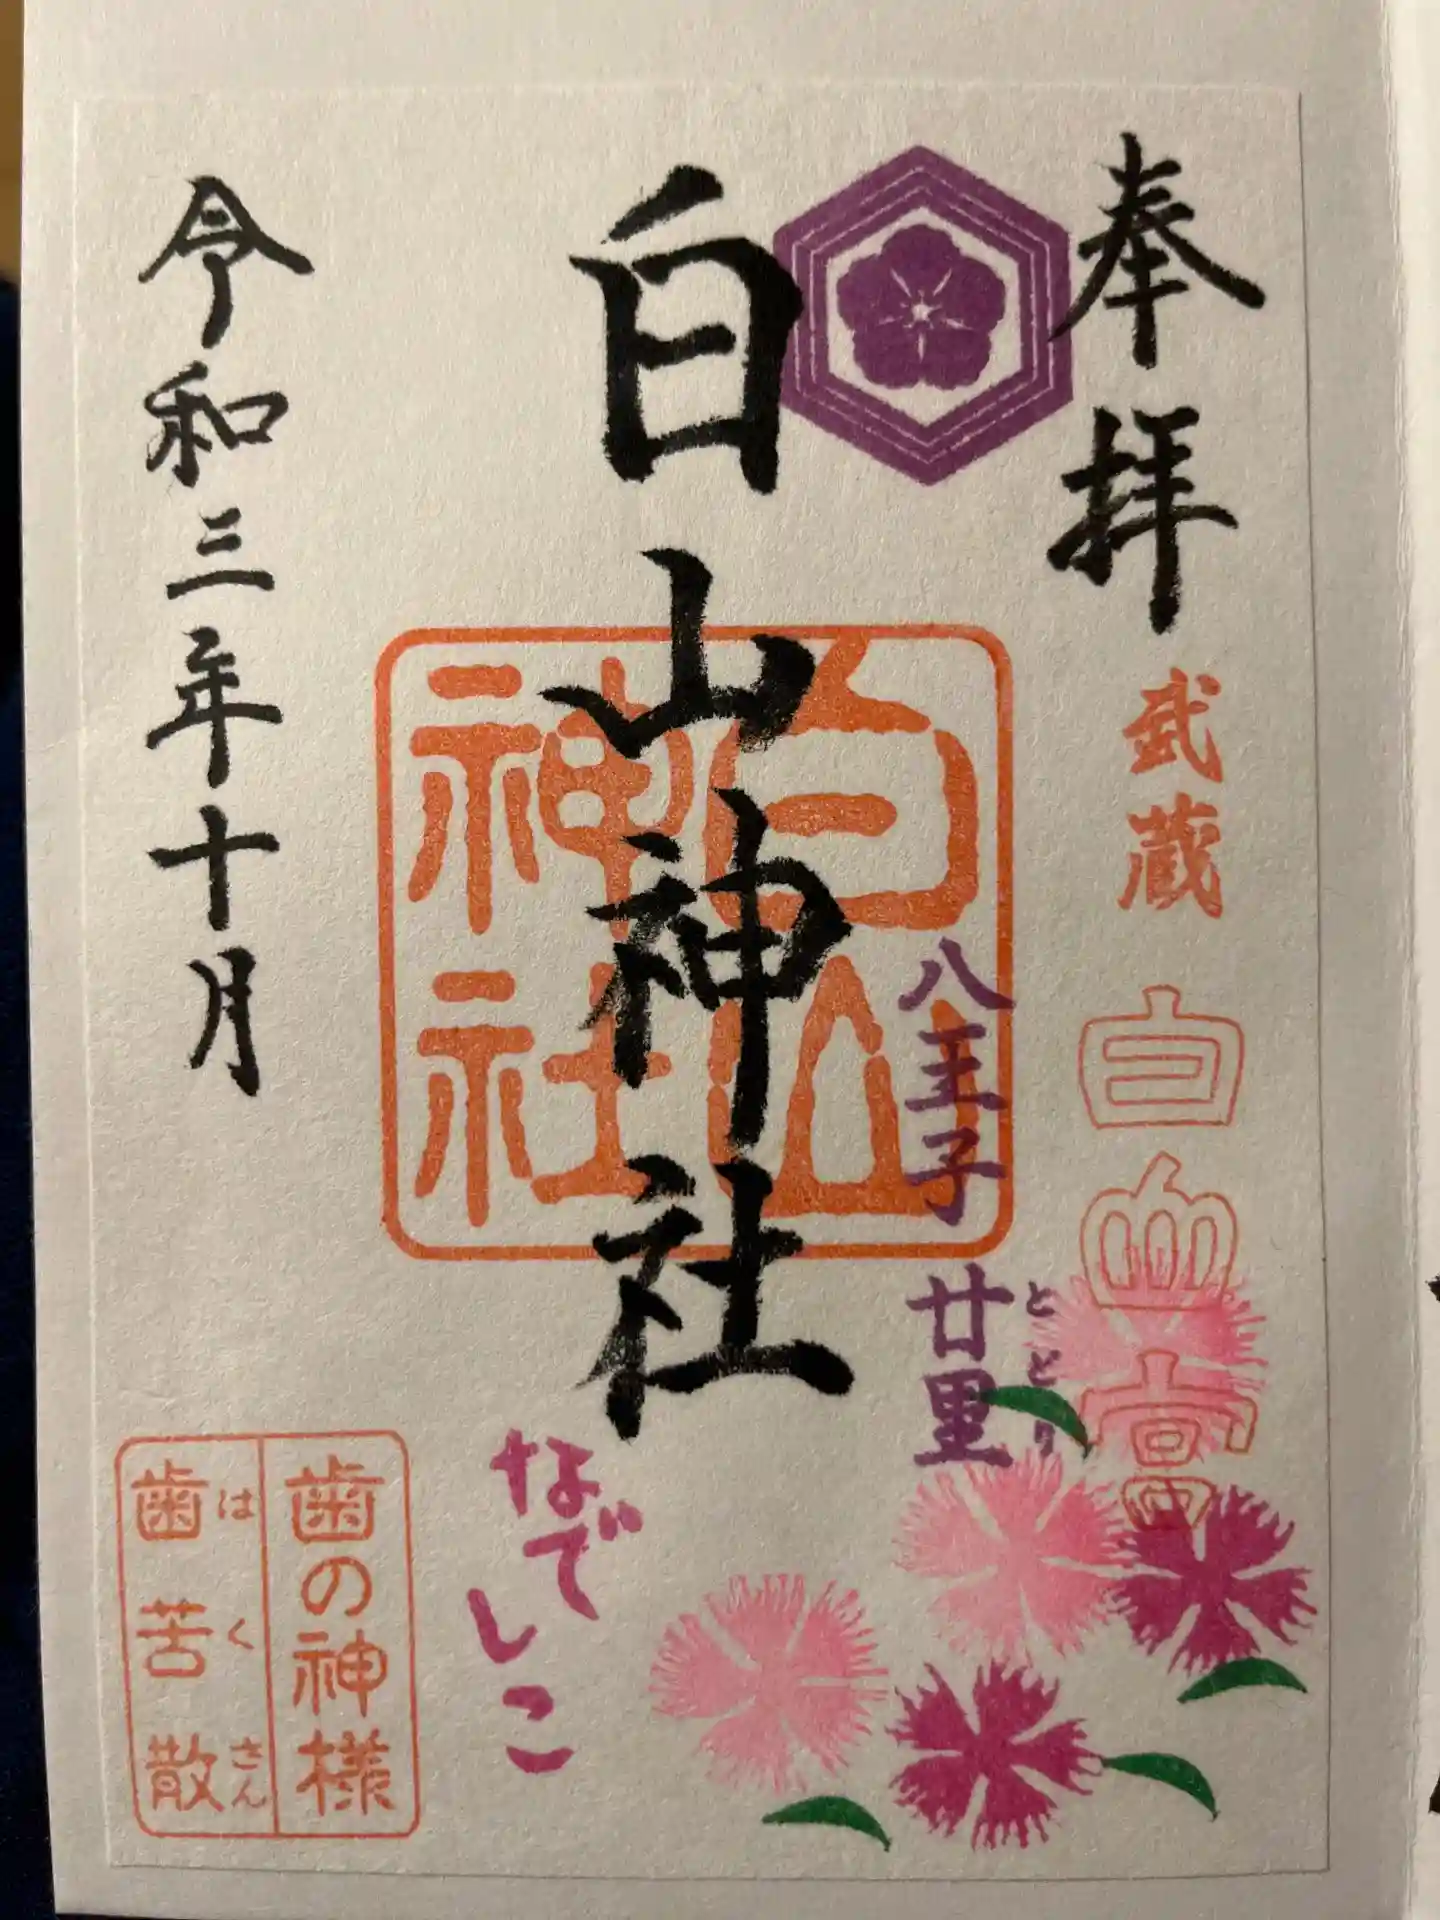 奉拝
武蔵
白山宮
とどり
八王子 廿里
白山神社
白山
神社
なでしこ
令和三年十月
歯の神様
はくさん
歯苦散